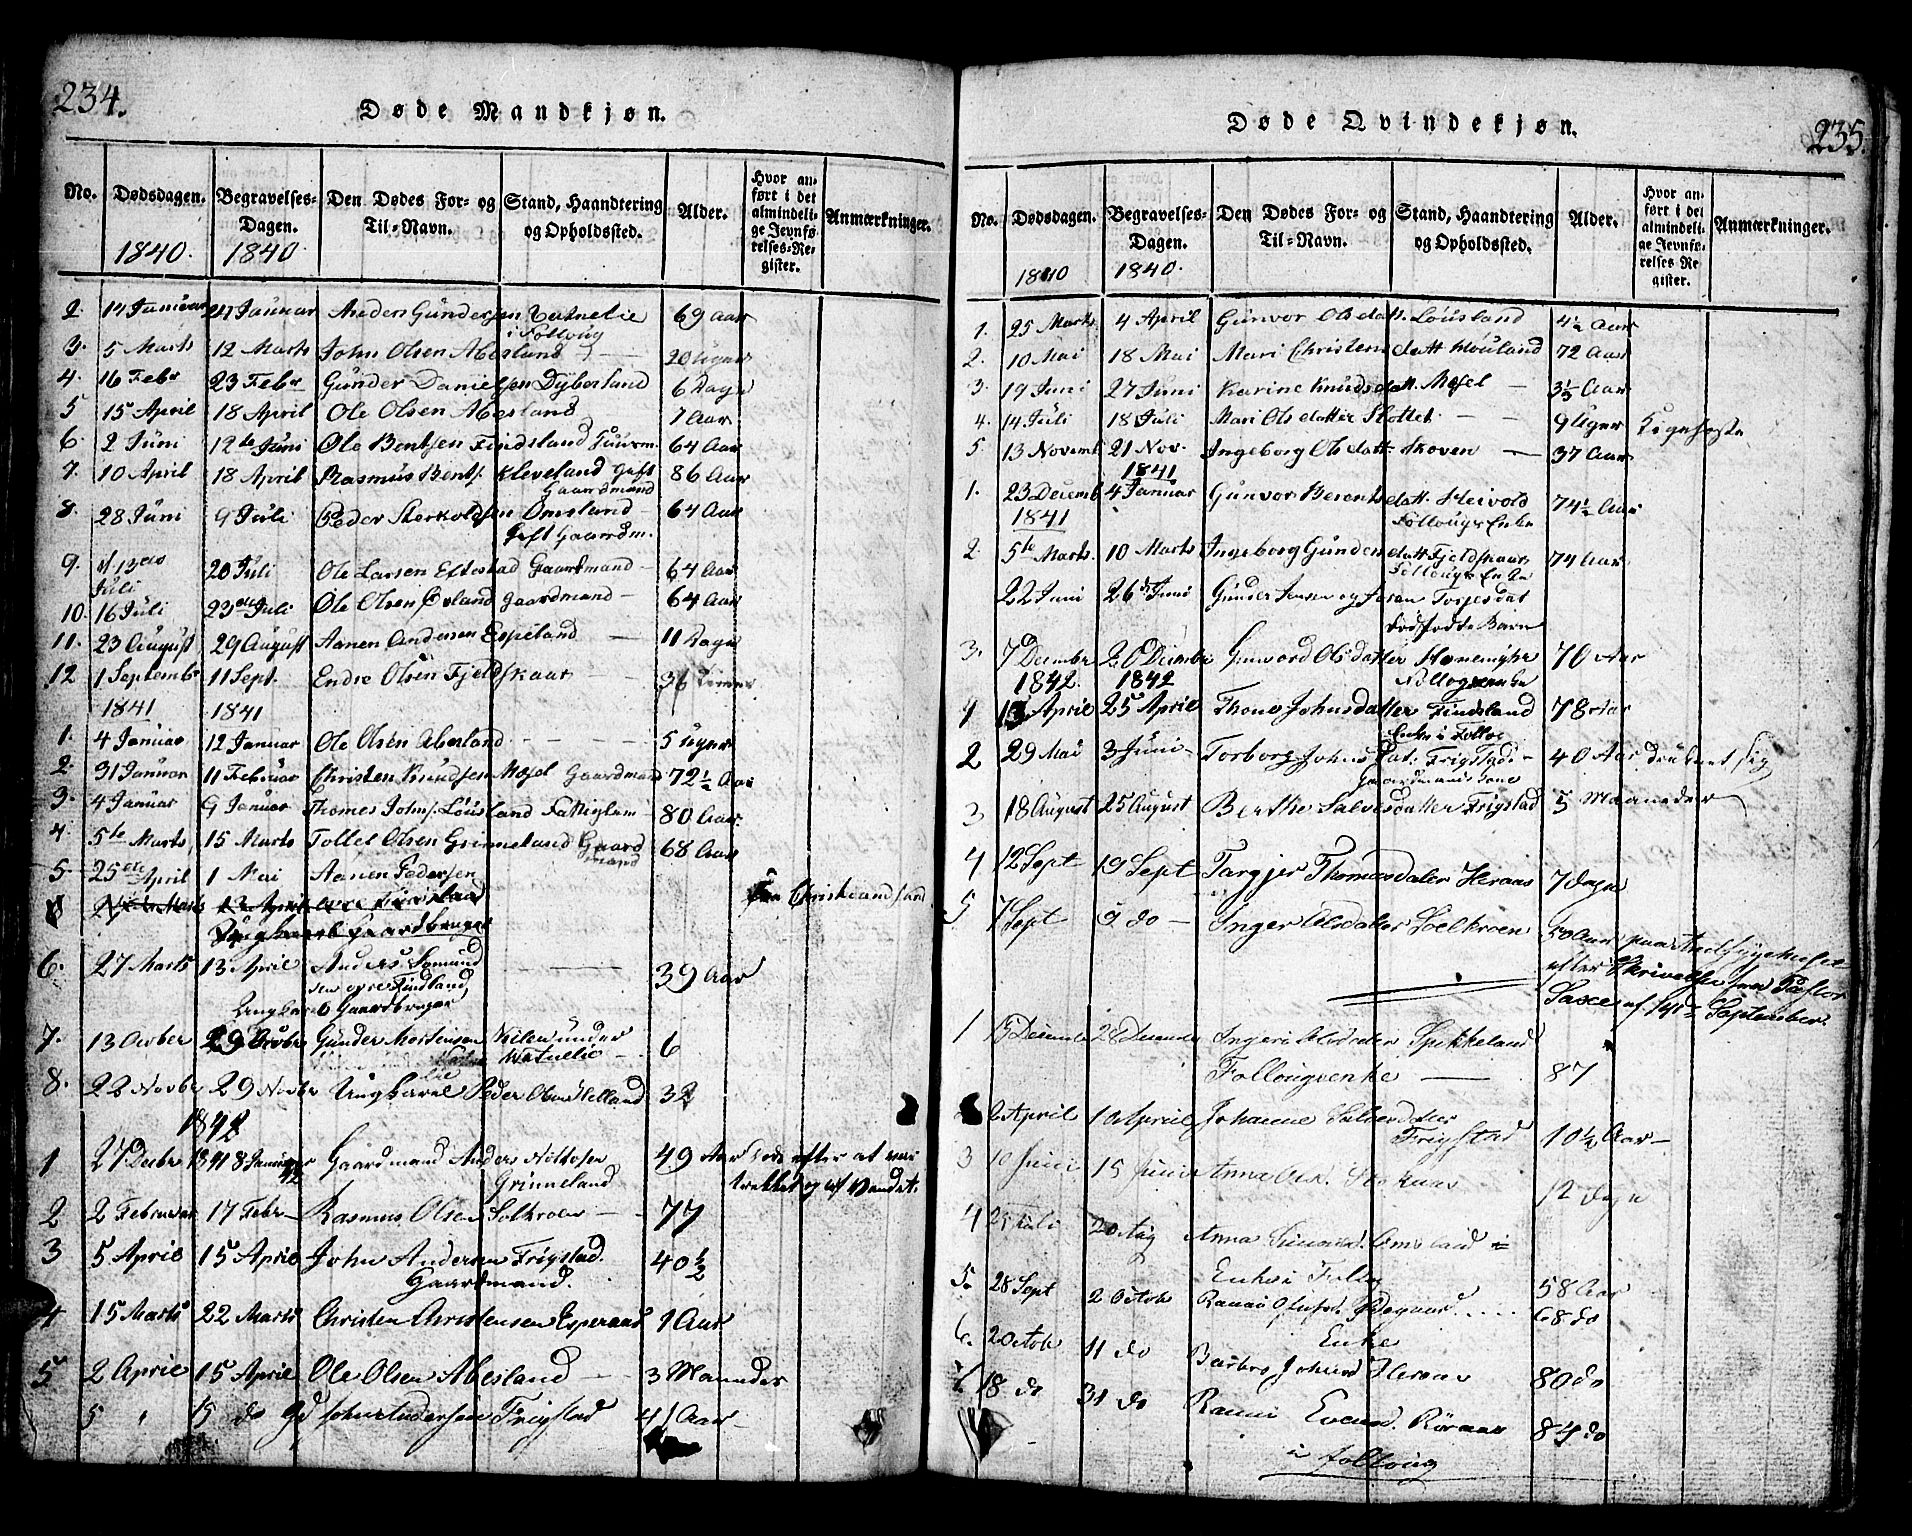 234.
Døde Mandkjøn.
No. Dødsdagen. Begravelses-Dagen. Den Dødes For- og Til-Navn. Stand, Haandtering og Opholdssted. Alder. Hvor anført i det almindelige Jevnførelses-Register. Anmærkninger.
1840. 1840
2. 14 Januar Januar Anden Gundersen Vatnelie 69 Aar
i Folloug
3. 5 Marts 12 Marts John Olsen Abesland 20 Uger
4. 16 Febr 23 Febr Gunder Danielsen Dyberland 6 Dage
5 15 April 18 April Ole Olsen Abesland 7 Aar
6. 2 Juni 12te Juni Ole Bentsen Findsland 64 Aar
7. 10 April 18 April Rasmus Bents. Kleveland Gift 86 Aar
Gaardmand
8. 28 Juni 9 Juli Peder Sterkoldsen Omsland 64 Aar
Gift Gaardm.
9. d. 13de Juli 20 Juli Ole Larsen Eftestad Gaardmand 64 Aar
10. 16 Juli 23de Juli Ole Olsen Gaardmand 64 Aar
11. 23 August 29 August Aanen Andersen Espeland 11 Dage
12 1 Septembr 11 Sept. Endre Olsen Fjeldskaar 36
1841 1841
1. 4 Januar 12 Januar Ole Olsen Abesland 5 Uger
2. 31 Januar 11 Februar Christen Knudsen Mosel Gaardmand 72½ Aar
3. 4 Januar 9 Januar Thomes Johns. Lousland Fattiglem 80 Aar
4. 5te Marts 15 Marts Tollel Olsen Grinneland Gaardmand 68 Aar
5. 25de April 1 Mai Aanen Pedersen
Christiansand
6. 27 Marts 13 April Anders Somund
sen øvre Findland, 39 Aar
Ungkarl & Gaardbruger
7. 13 Octber 29 Octbr Gunder Mortensen Kilen under 6
Watnelie
8. 22 Novbr 29 Novbr Ungkarl Peder Olsen Helland 32
1842
1 27 Decbr 1841 8 Januar 42 Gaardmand Anders Nilsen 49 Aar Døde efter at være
Grinneland trekket op af Vandet.
2 2 Februar 17 Febr Rasmus Olsen Solkroen 77
3 5 April 15 April John Andersen Frigstad. 40½
Gaardmand.
4 15 Marts 22 Marts Christen Christensen Esperaas 1 Aar
5 2 April 15 April Ole Olsen Abesland 3 Maaneder
5 " 15 do Gd John Andersen Frigstad 41 Aar
235.
Døde Qvindekjøn.
No. Dødsdagen. Begravelses-Dagen. Den Dødes For- og Til-Navn. Stand, Haandtering og Opholdssted. Alder. Hvor anført i det almindelige Jevnførelses Register. Anmærkninger.
1840 1840.
1. 25 Marts 4 April Gunvor Olsdatt. Lousland 4½ Aar
2. 10 Mai 18 Mai Mari Christensdatt. Houland 72 Aar
3. 19 Juni 27 Juni Karine Knudsdatt. Mosel 3½ Aar
4. 14 Juli 18 Juli Mari Olsdatter Slottet 9 Uger Kigehoste
5. 13 Novemb 21 Nov. Ingeborg Olsdatt. Skoven 37 Aar
1841
1. 23 Decemb 4 Januar Gunvor Berentsdatt. Heivold 74½ Aar
1841 Follougs Enke
2. 5te Marts. 10 Marts Ingeborg Gundersdatt. Fjeldskaar 74 Aar
Follougs Enke
22 Juni 26de Juni Gunder Jensen og Torjesdat
Dødfødte Barn
3. 7 Decembr 20 Decembr Gunvord Olsdatter 70 Aar
1842. 1842 Follogsenke
1 13 April 25 April Thone Johnsdatter Findsland 78 Aar
Enke i Follog
2 29 Mai 3 Juni Torborg Johnsdat. Frigstad 40 Aar druknet sig
Gaardmands kone
3 18 August 25 August Berthe Salvesdatter Frigstad 5 Maaneder
4 12 Sept 19 Sept Targjer Thomasdatter Heraas 7 Dage
5 7 Sept 9 do Inger Olsdatter Solkroen 50 Aar paa Amtssygehuset
efter Skrivelse fra Pastor
Saxe af September.
1 15 Decembr 28 Decembr Ingeri Olsdatter Spikkeland
Follougsenke 87
2 April 10 April Johanne Salvesdatter
Frigstad 10½ Aar
3 10 Juni 15 Juni Anna Ols. 12 Dage
4 25 Juli Aug Anna Omsland
Enke i Follog 58 Aar
5. 28 Sept 2 Octob Ranni Olufsd. Ødegaard 68 do
Enke
6. 2 Octob 11 do Barbro Heraas 80 do
7 18 do 31 do Ranni Evensd. Røraas 84 do
i Folloug